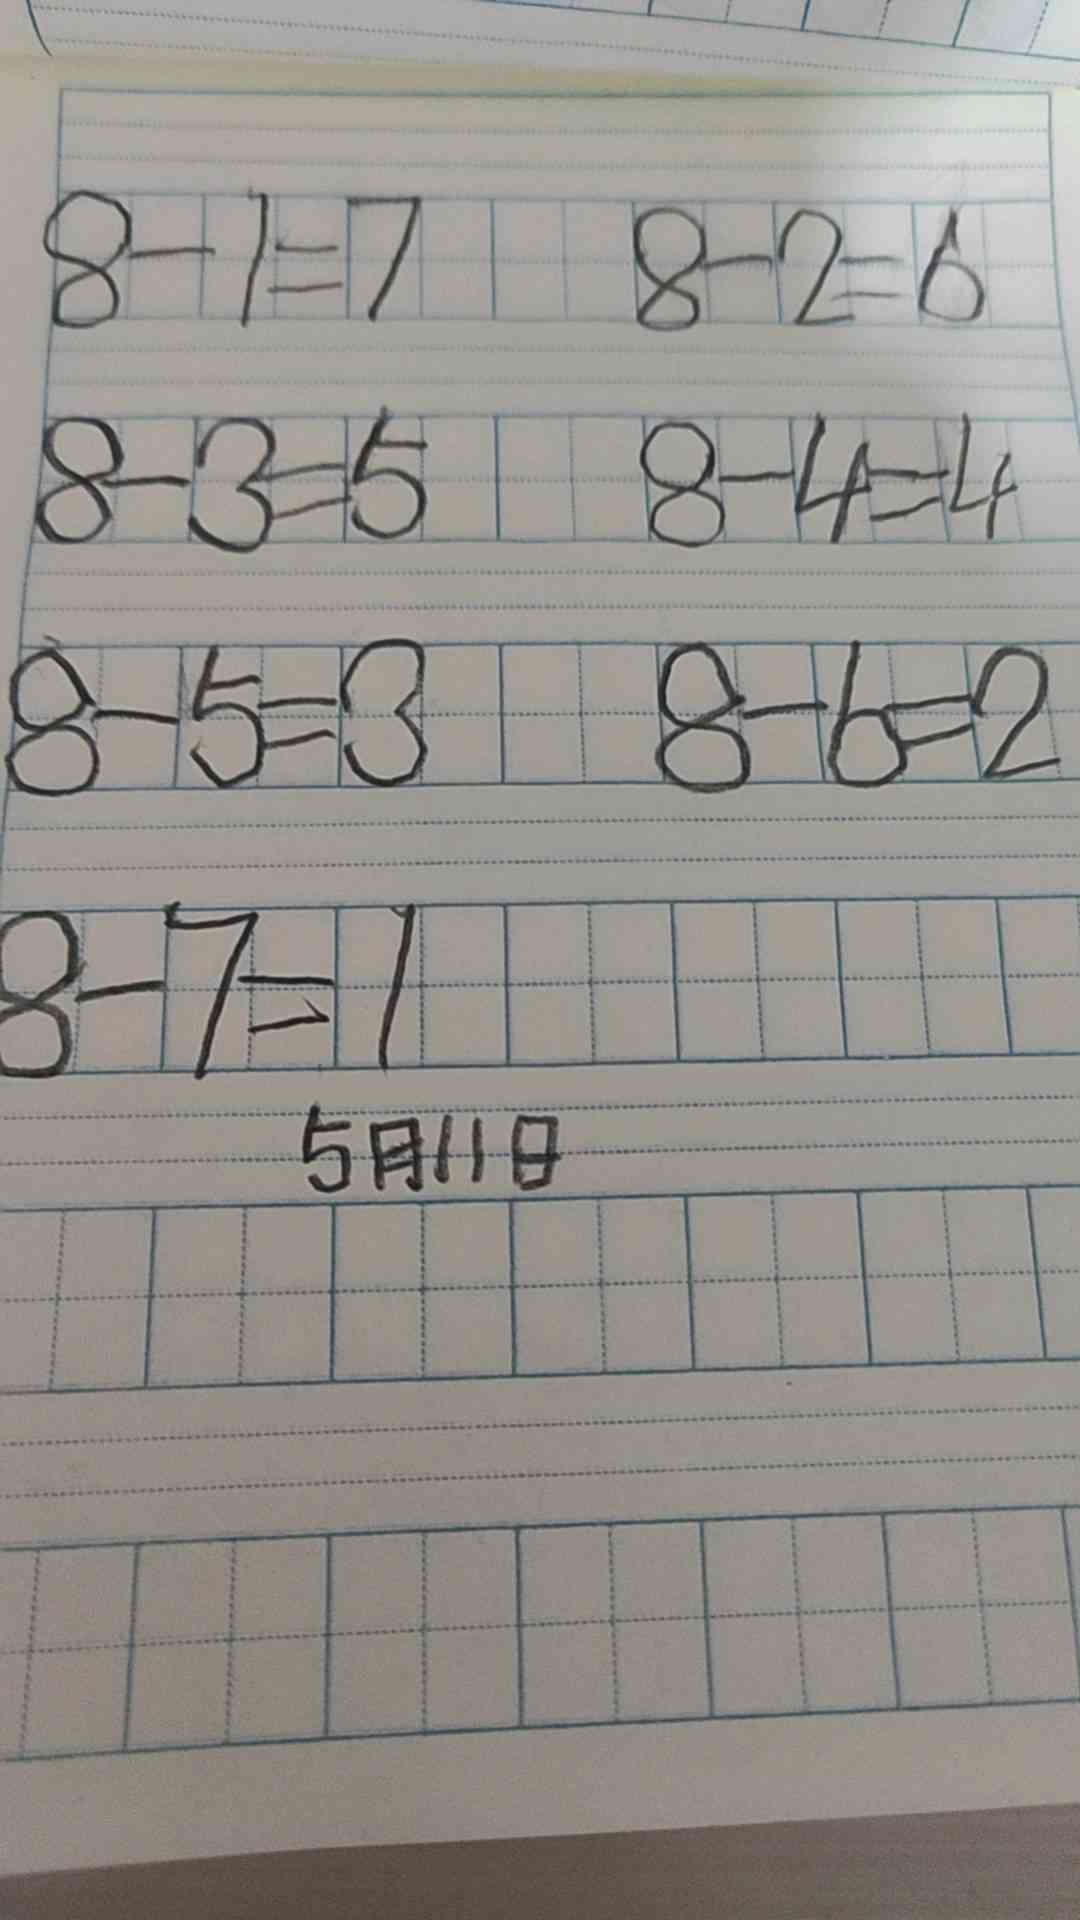 8-1=7 8-2=6
8-3=5 8-4=4
8-5=3 8-6=2
8-7=1
5月11日